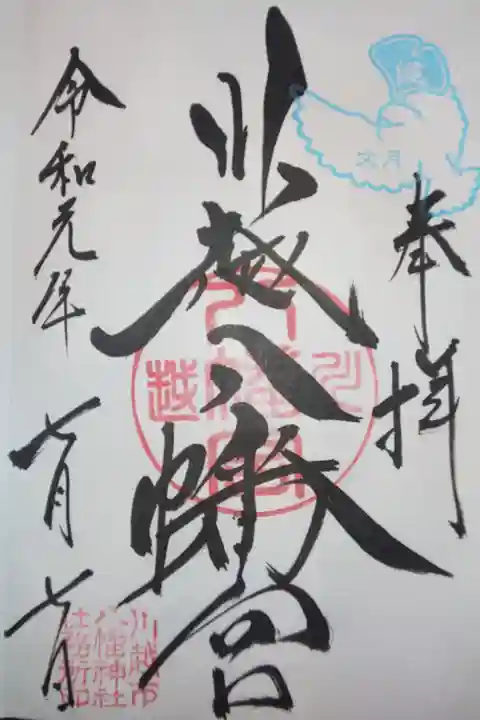 奉拝
文月
川越八幡宮
八幡宮
川
越
令和元年
七月七日
川越市
八幡神社
社務所印